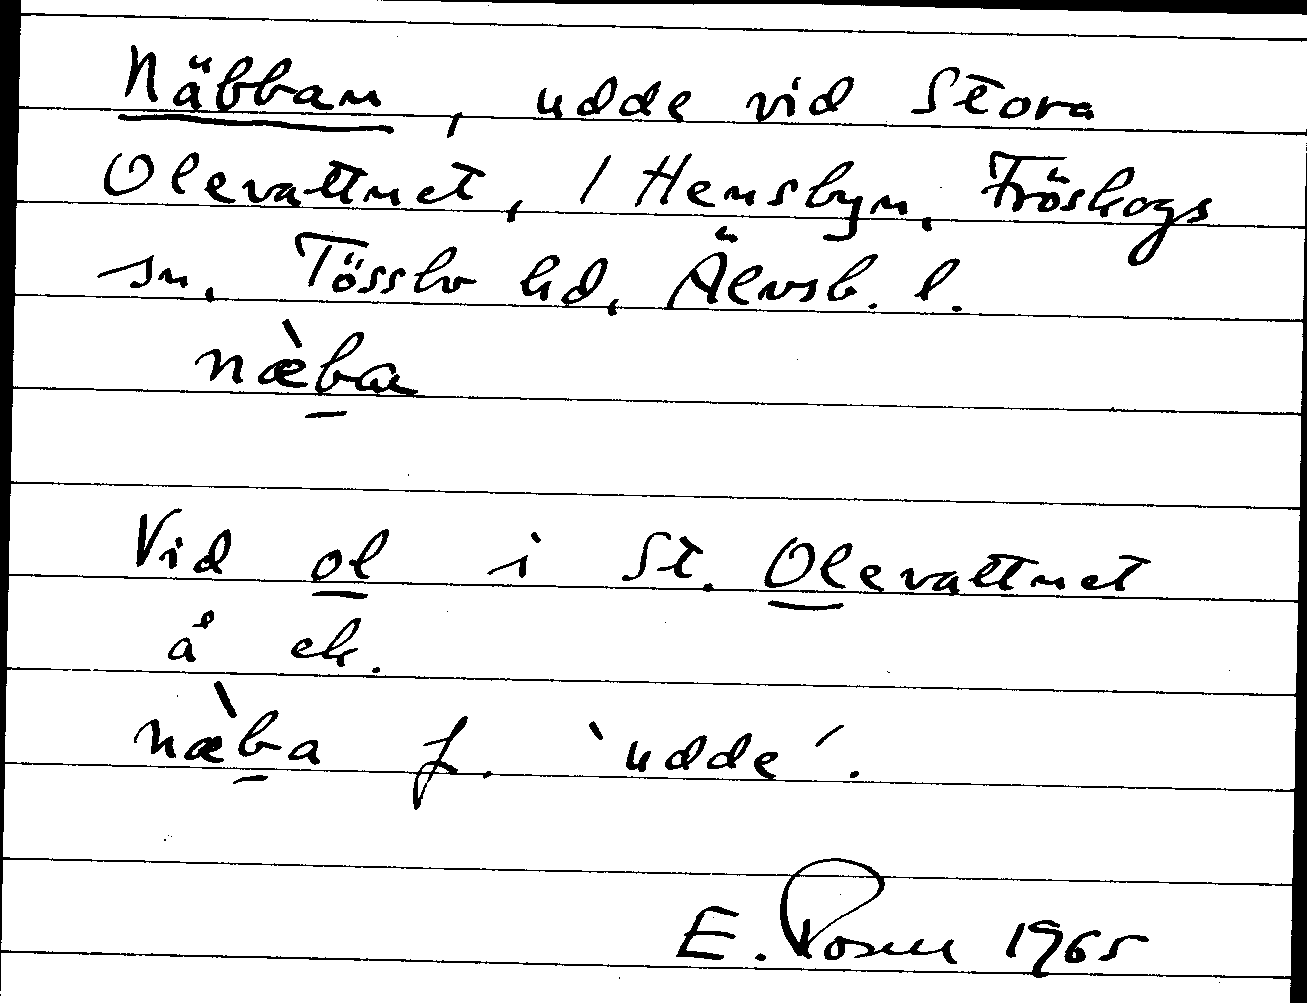 Näbban, udde vid Stora
Olevattnet, / Hensbyn, Fröskogs
sn. Tössbo hd, Älvsb. l.
næ̀ba
Vid ol i St. Olevattnet
å ek.
næ̀ba f. `udde´.
E. Rosen 1965